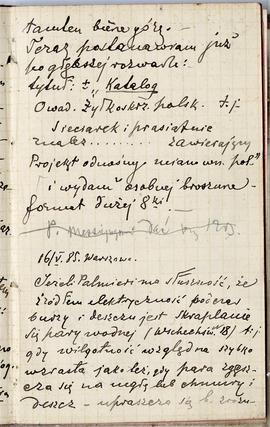 tamten biorę górę. —
Teraz postanawiam już
po głębszej rozwadze:
tytuł: ± „Katalog
Owad. Żyłkoskrz. polsk. t. j.
Sieciarek i prasiatnic
............ zawierający
Projekt odnośny mian
i wydam osobną broszurę
format dużej 8ki
16/V. 95. Warszawa.
Jeżeli Palmieri ma słuszność, że
źródłem elektryczności podczas
burzy i deszczu jest skraplanie
się pary wodnej (Wszechśw. 18) t. j.
gdy wilgotność względna szybko
wzrasta jako też, gdy para zgęsz-
cza się na mgłę lub chmury i
deszcz — upraszcza się b. zrozu-